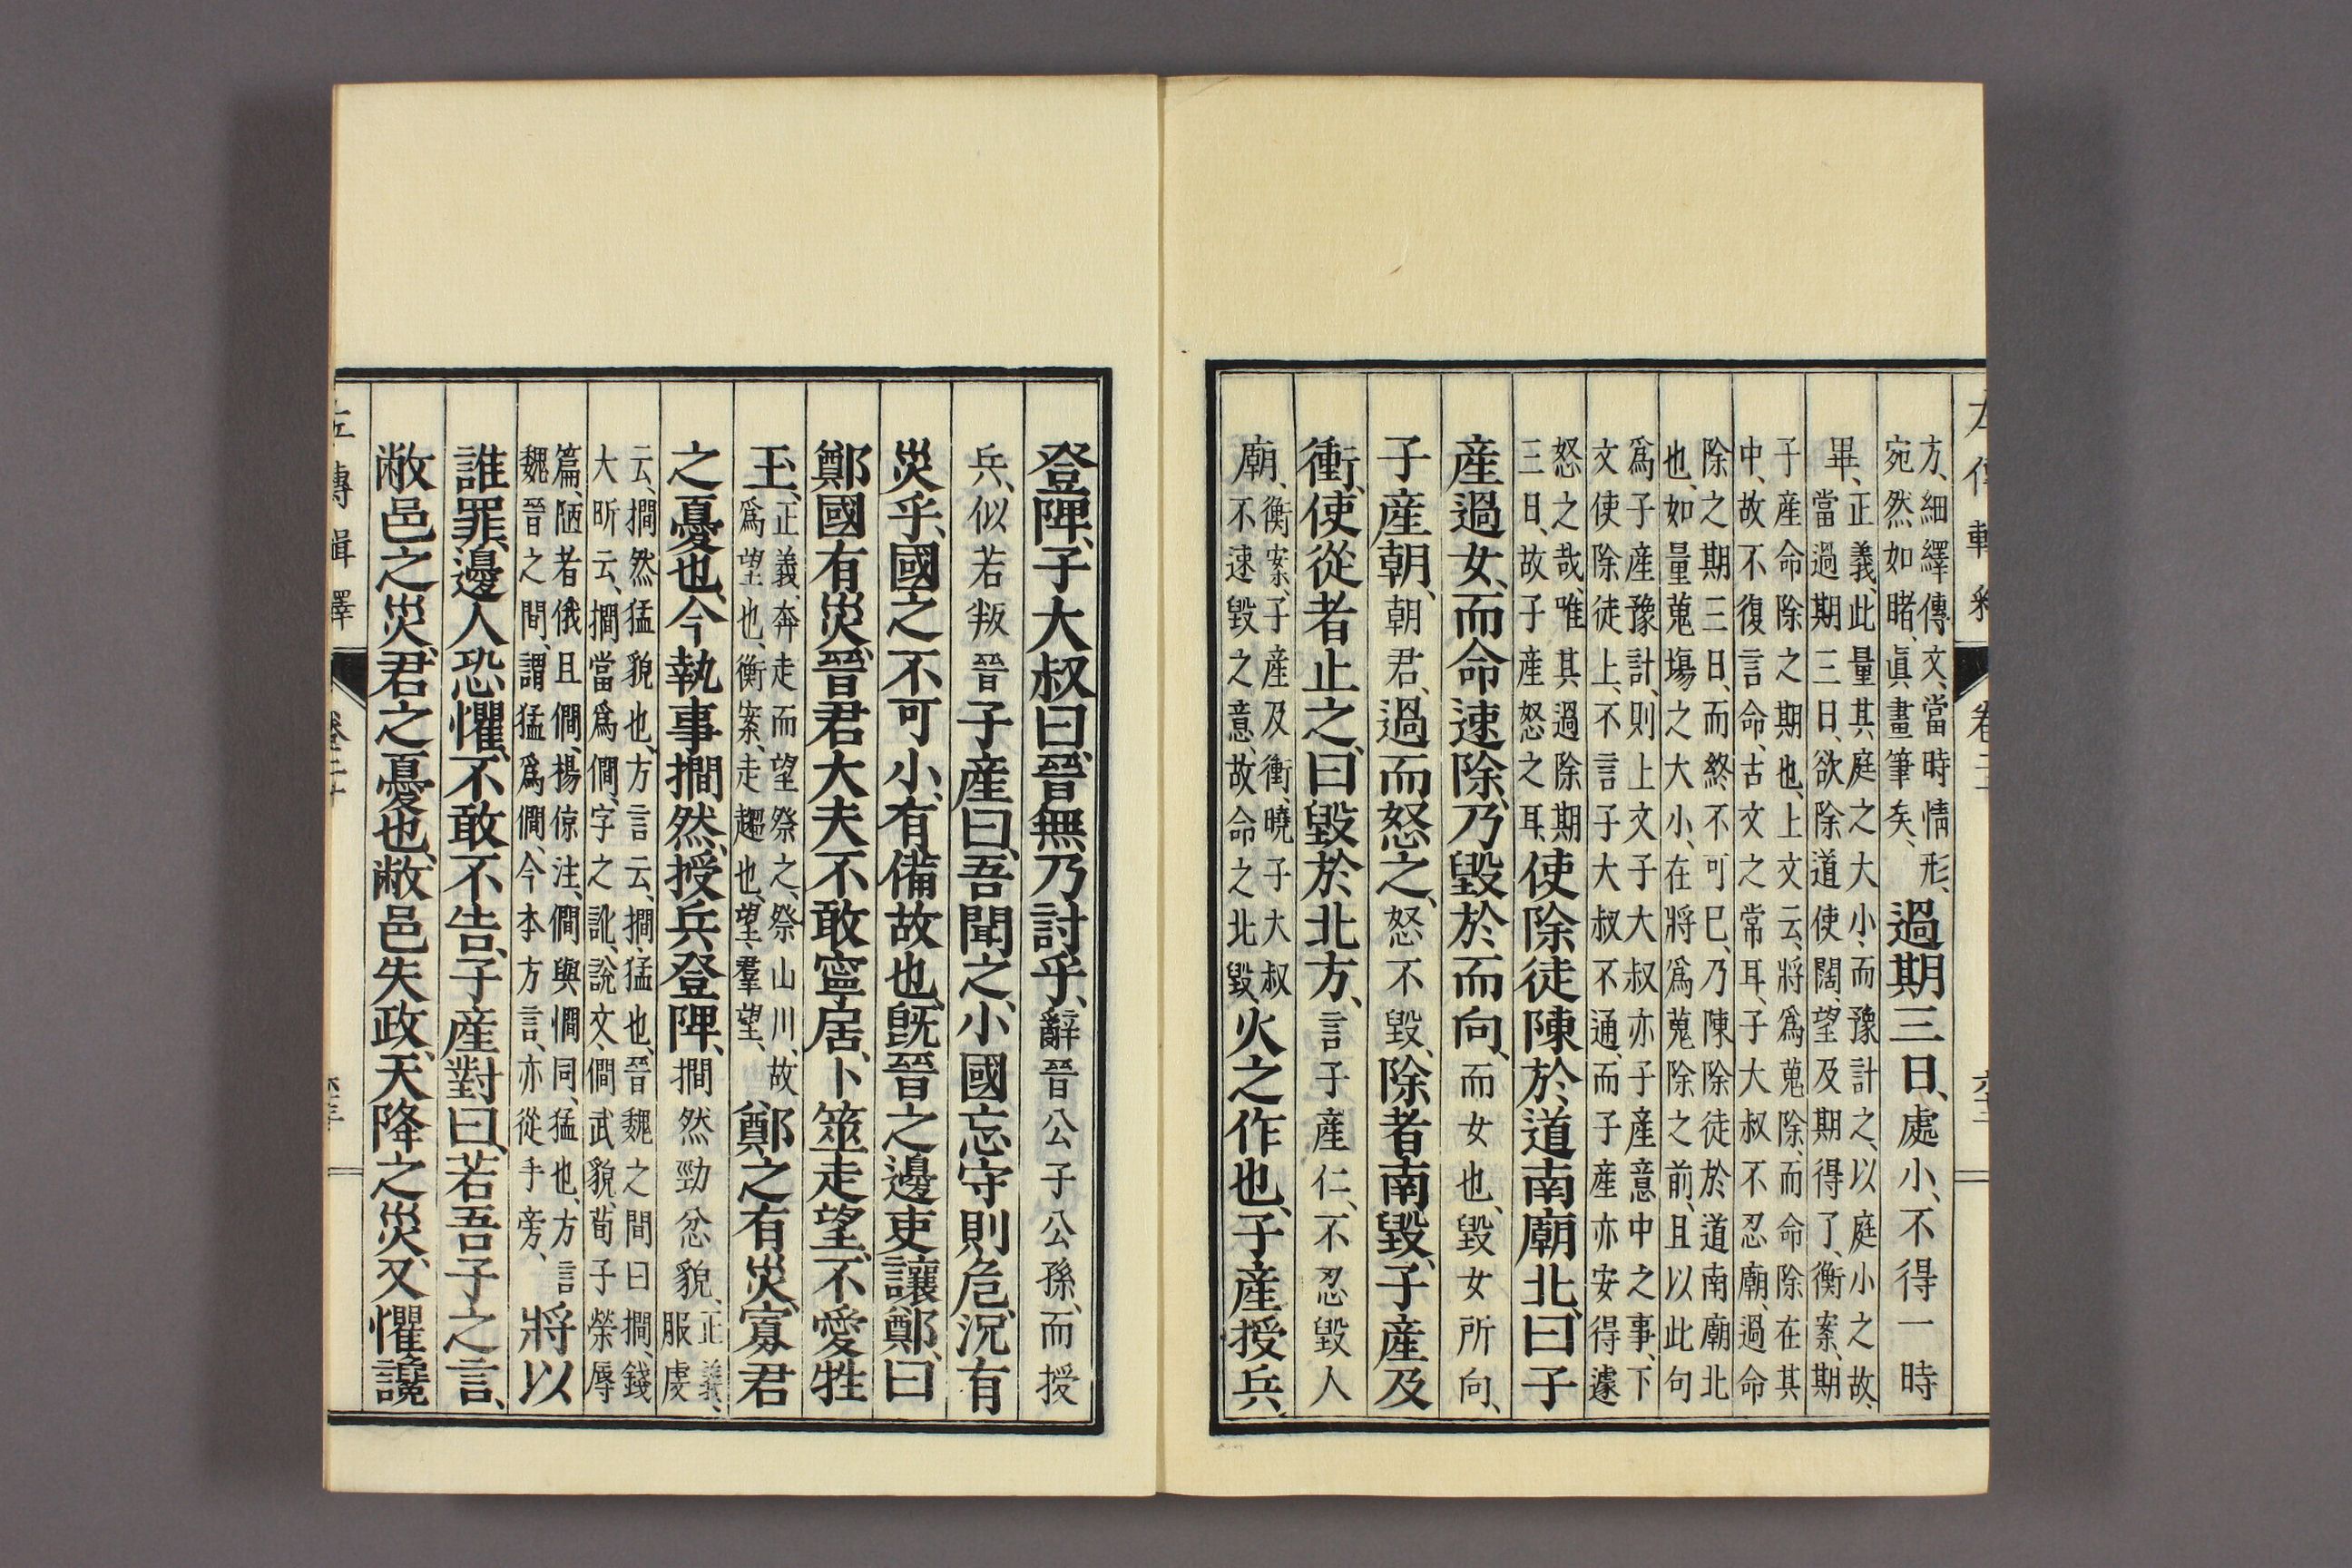 左傳輯釋 卷二十
方、細繹傳文、當時情形、
宛然如睹、眞畫筆矣、
過期三日、處小、不得一時
畢、
正義、此量其庭之大小、而豫計之、以庭小之故、
當過期三日、欲除道使闊、望及期得了、衡案、期
子產命除之期也、上文云、將爲蒐除、而命除在其
中、故不復言命、古文之常耳、子大叔不忍廟、過命
除之期三日、而終不可巳、乃陳除徒於道南廟北
也、如量蒐場之大小、在將爲蒐除之前、且以此句
爲子產豫計、則上文子大叔亦子產意中之事、下
文使除徒上、不言子大叔不通、而子產亦安得遽
怒之哉、唯其過除期
三日、故子產怒之耳、
使除徒陳於道南廟北、曰子
産過女、而命速除、乃毀於而向、而女也、毀女所向、
子産朝、朝君、過而怒之、怒不毀、除者南毀、子産及
衝、使從者止之、曰毀於北方、言子産仁、不忍毀人
廟、
衡案、子產及衝、曉子大叔
不速毀之意、故命之北毀、
火之作也、子産授兵、
登陴、子大叔曰、晉無乃討乎、辭晉公子公孫、而授
兵、似若叛晉子産曰、吾聞之、小國忘守則危、況有
災乎、國之不可小、有備故也、旣晉之邊吏讓鄭、曰
鄭國有災、晉君大夫不敢寧居、卜筮走望、不愛牲
玉、
正義、奔走而望祭之、祭山川、故
爲望也、衡案、走趨也、望羣望、
鄭之有災、寡君
之憂也、今執事撊然、授兵登陴、撊然勁忿貌、
正義、
服虔
云、撊然猛貌也、方言云、撊、猛也、晉魏之間曰撊、錢
大昕云、撊當爲僩、字之訛、說文、僩武貌、荀子榮辱
篇、陋者俄且僩、楊倞注、僩與撊同、猛也、方言
魏晉之間、謂猛爲僩、今本方言、亦從手旁、
將以
誰罪、邊人恐懼、不敢不告、子産對曰、若吾子之言、
敝邑之災、君之憂也、敝邑失政、天降之災、又懼讒
左傳輯釋 卷二十